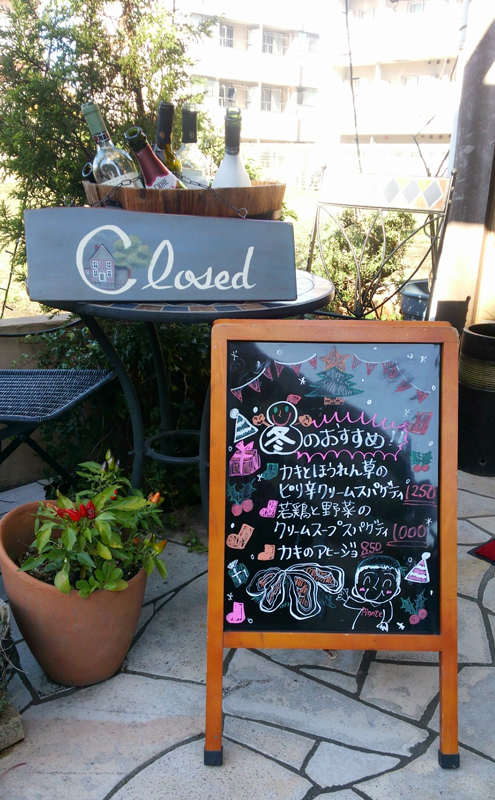 Closed
冬のおすすめ!!
カキとほうれん草の
ピリ辛クリームスパゲティ 1250
若鶏と野菜の
クリームスープスパゲティ 1000
カキのアヒージョ 850